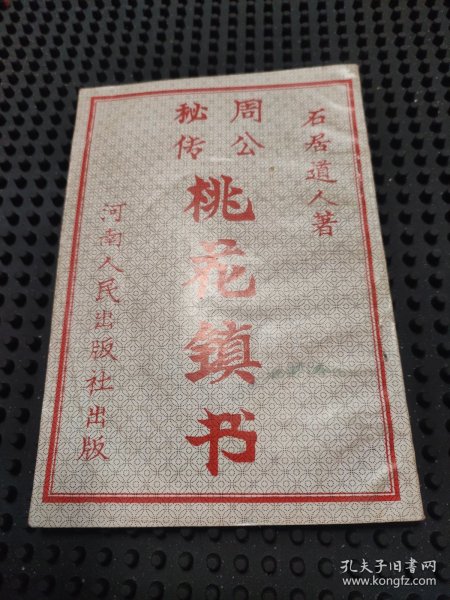 石居道人著
周公
秘传
桃花镇书
河南人民出版社出版
孔夫子旧书网
www.kongfz.com